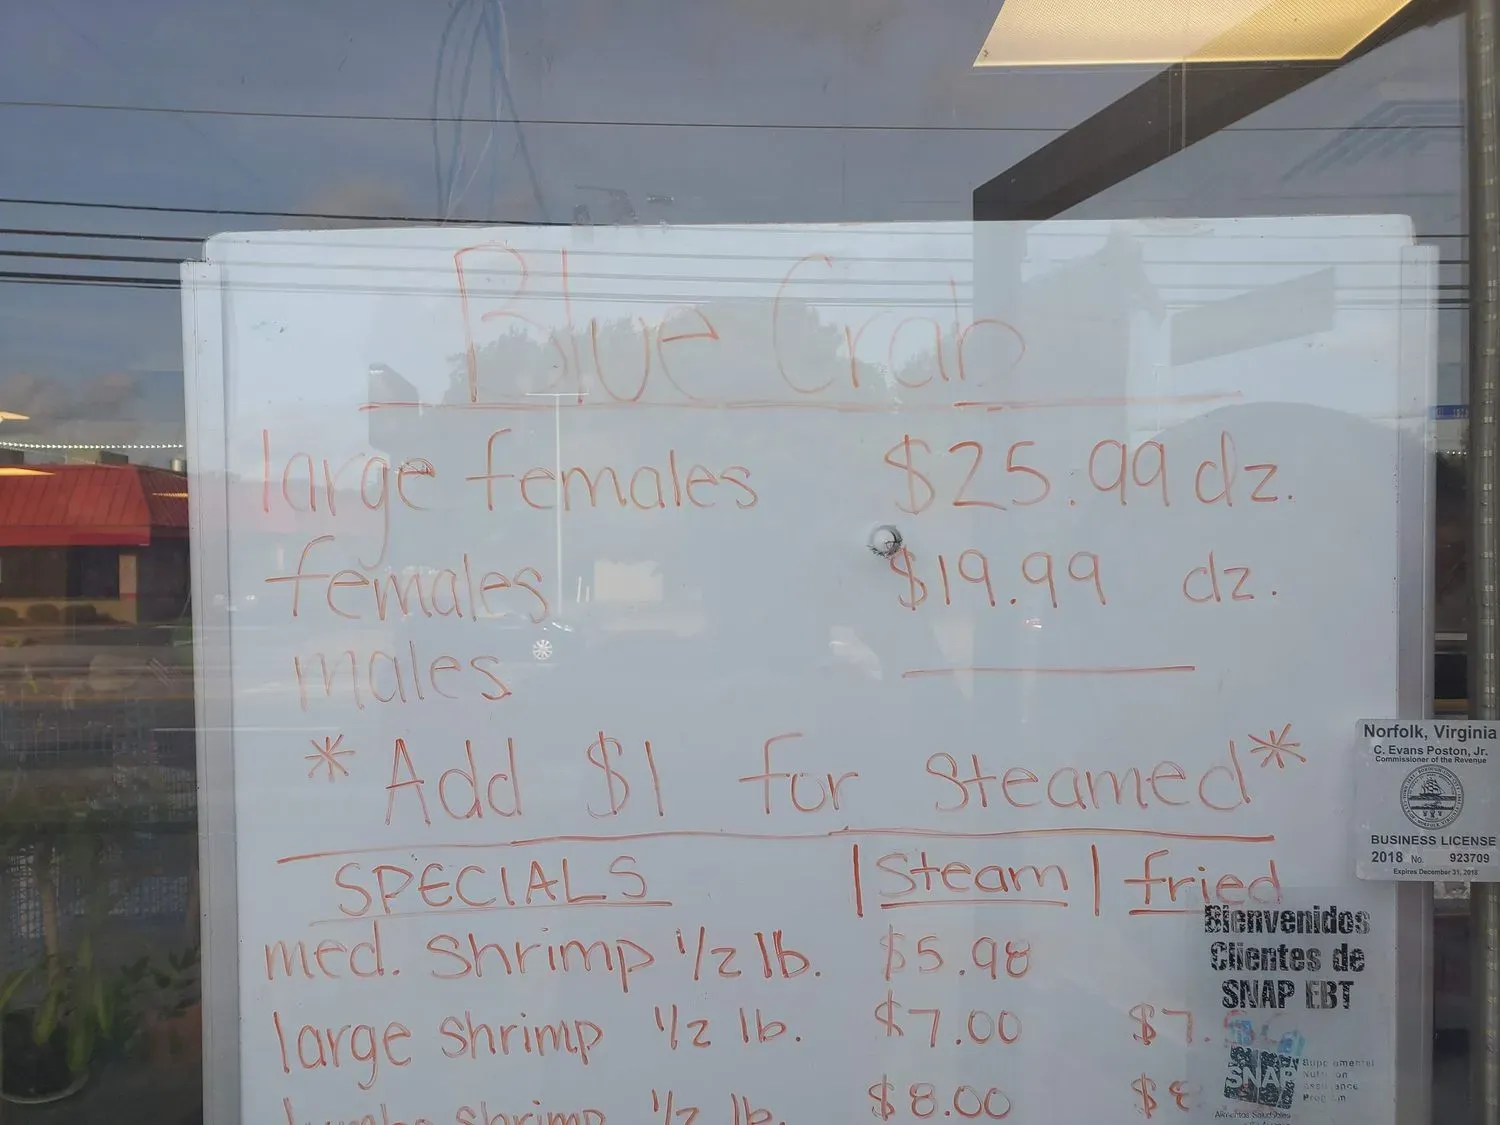 Blue Crab
large females $25.99 dz.
females $19.99 dz.
males
*Add $1 for steamed*
SPECIALS | Steam | fried
med. shrimp 1/2 lb. $5.98
large shrimp 1/2 lb. $7.00 $7.
jumbo shrimp 1/2 lb. $8.00
Norfolk, Virginia
C. Evans Poston, Jr.
Commissioner of the Revenue
BUSINESS LICENSE
2018 No. 923709
Expires December 31, 2018
Bienvenidos
Clientes de
SNAP EBT
SNAP